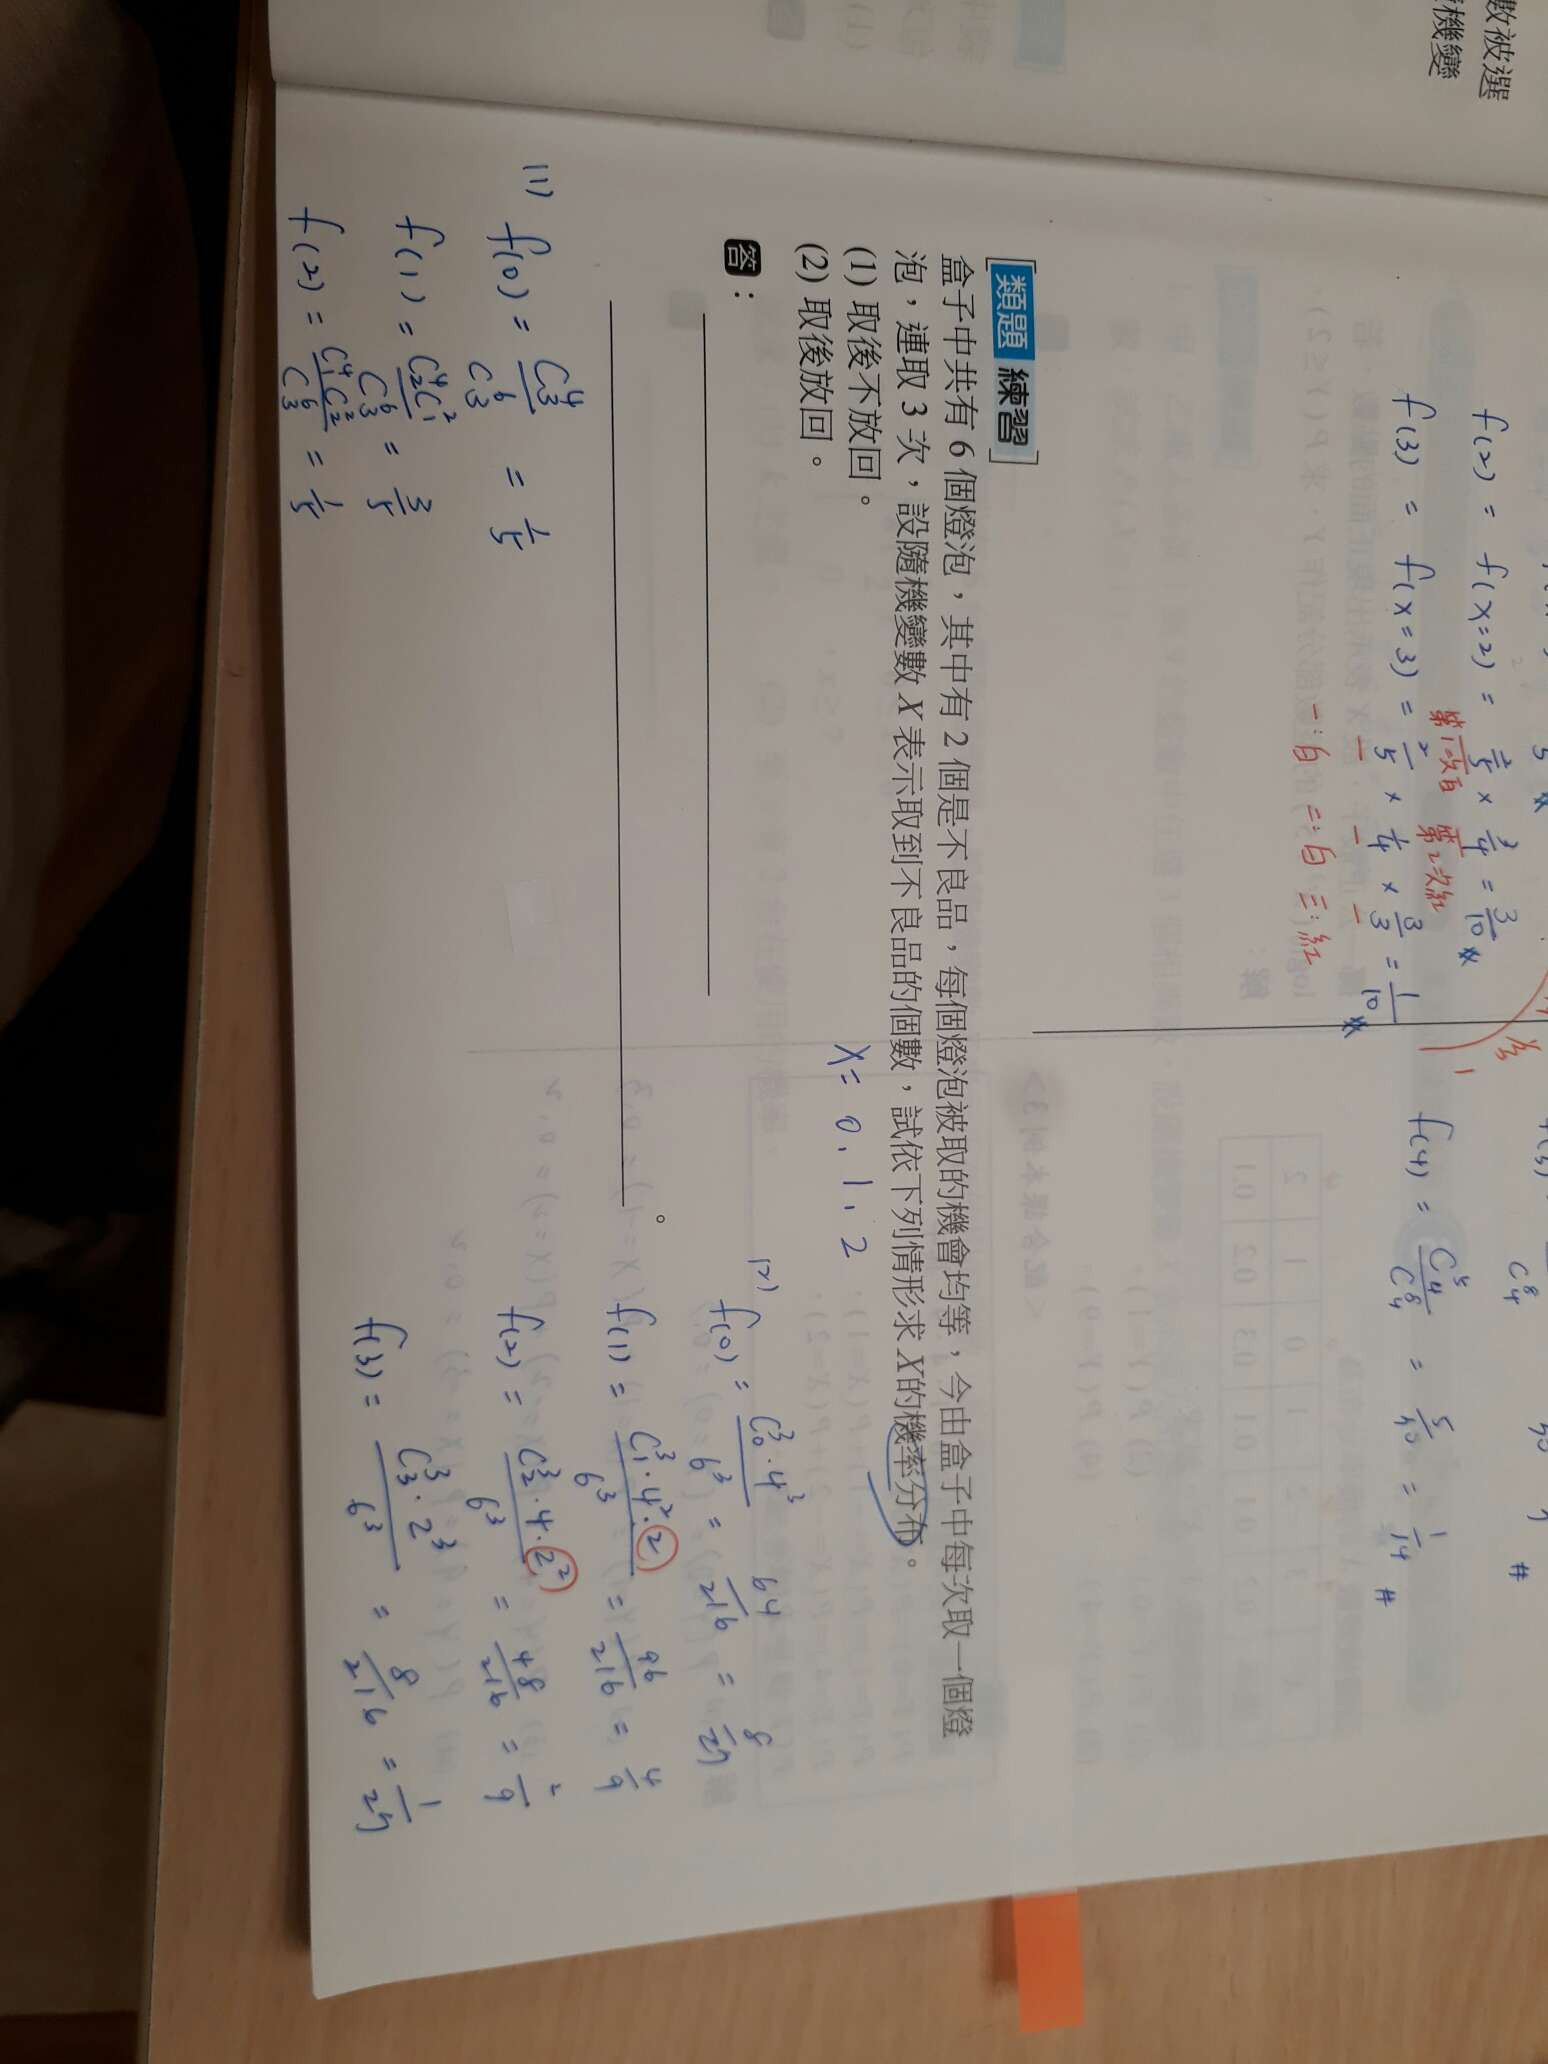 數被選
機變
f(2) = f(x=2) = 2/5 × 3/4 = 3/10
第1次白 第2次紅
f(3) = f(x=3) = 2/5 × 1/4 × 3/3 = 1/10
一:白 二:白 三:紅
f(4) = C⁵₄/C⁸₄ = 5/70 = 1/14 #
類題 練習
盒子中共有 6 個燈泡，其中有 2 個是不良品，每個燈泡被取的機會均等，今由盒子中每次取一個燈
泡，連取 3 次，設隨機變數 X 表示取到不良品的個數，試依下列情形求 X 的機率分布。
(1) 取後不放回。
(2) 取後放回。
x = 0, 1, 2
答：
。
(1) f(0) = C⁴₃/C⁶₃ = 1/5
f(1) = C⁴₂C²₁/C⁶₃ = 3/5
f(2) = C⁴₁C²₂/C⁶₃ = 1/5
(2) f(0) = C³₀·4³/6³ = 64/216 = 8/27
f(1) = C³₁·4²·2/6³ = 96/216 = 4/9
f(2) = C³₂·4·2²/6³ = 48/216 = 2/9
f(3) = C³₃·2³/6³ = 8/216 = 1/27